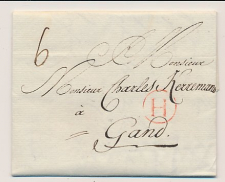 6
A Monsieur
Monsieur Charles Kerremans
à
H
Gand.